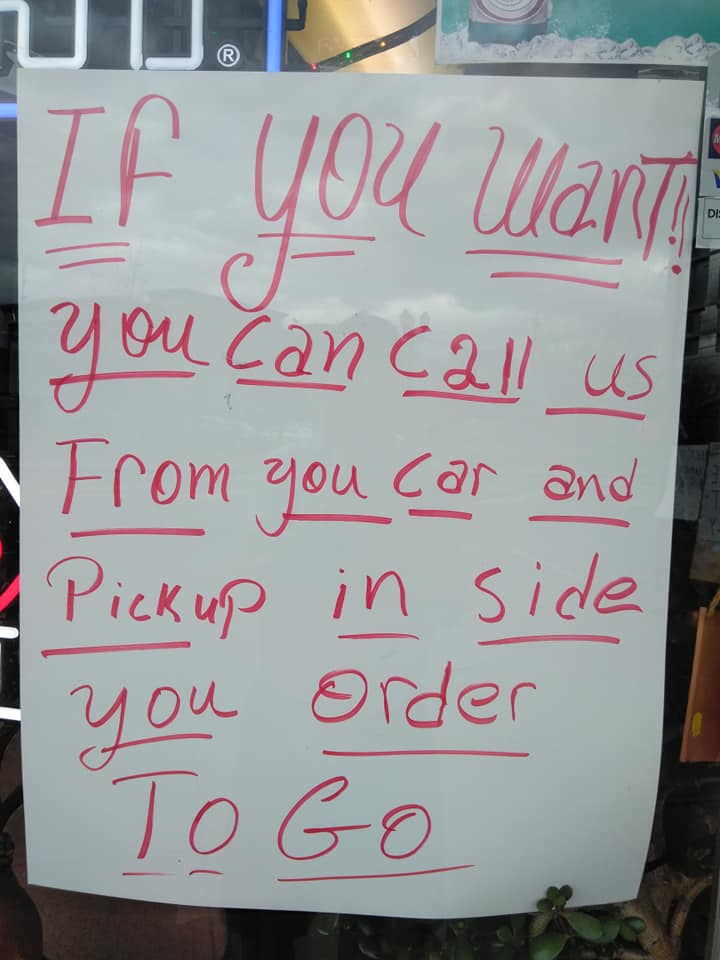 ®
If you want!!
you can call us
From you car and
Pickup in side
you order
To Go
DIS